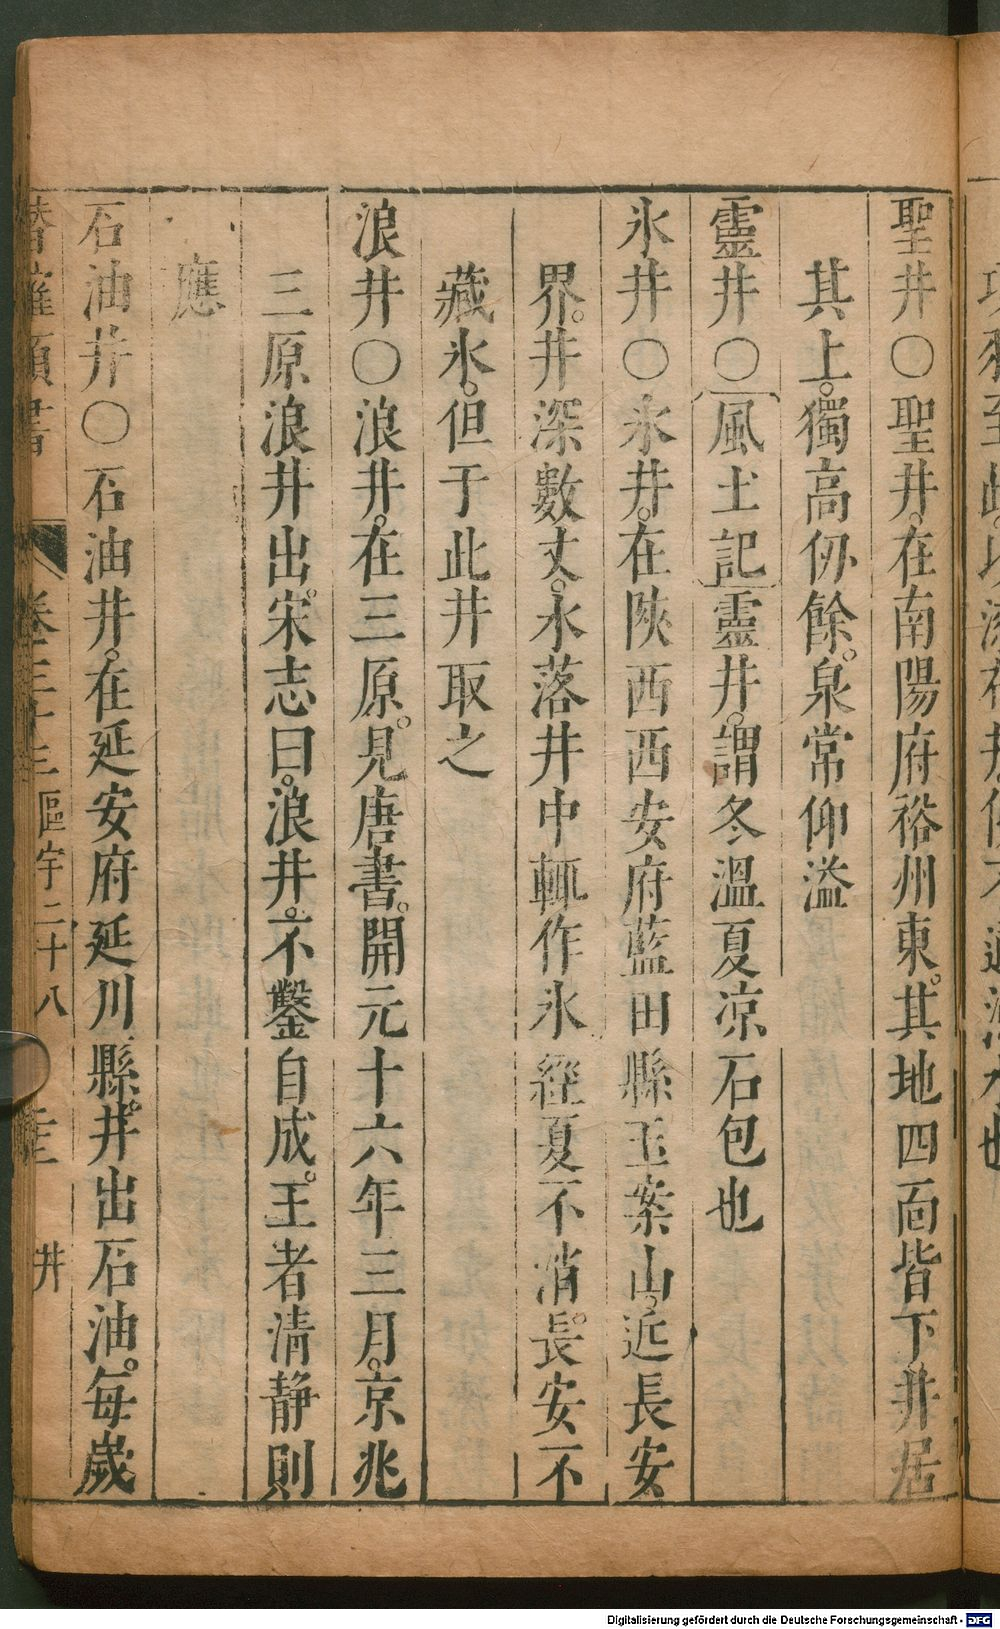 聖井〇聖井。在南陽府裕州東。其地四面皆下井居
其上。獨高仞餘。泉常仰溢
靈井〇〔風土記〕靈井。謂冬溫夏凉石包也
氷井〇氷井。在陝西西安府藍田縣玉案山。近長安
界。井深數丈。水落井中輒作氷經夏不消。長安不
藏氷。但于此井取之
浪井〇浪井。在三原。見唐書。開元十六年三月。京兆
三原浪井出。宋志曰。浪井。不鑿自成。王者清静則
應
石油井〇石油井。在延安府延川縣。井出石油。每歲
類書 卷三十三 區宇二十八 井
Digitalisierung gefördert durch die Deutsche Forschungsgemeinschaft - DFG